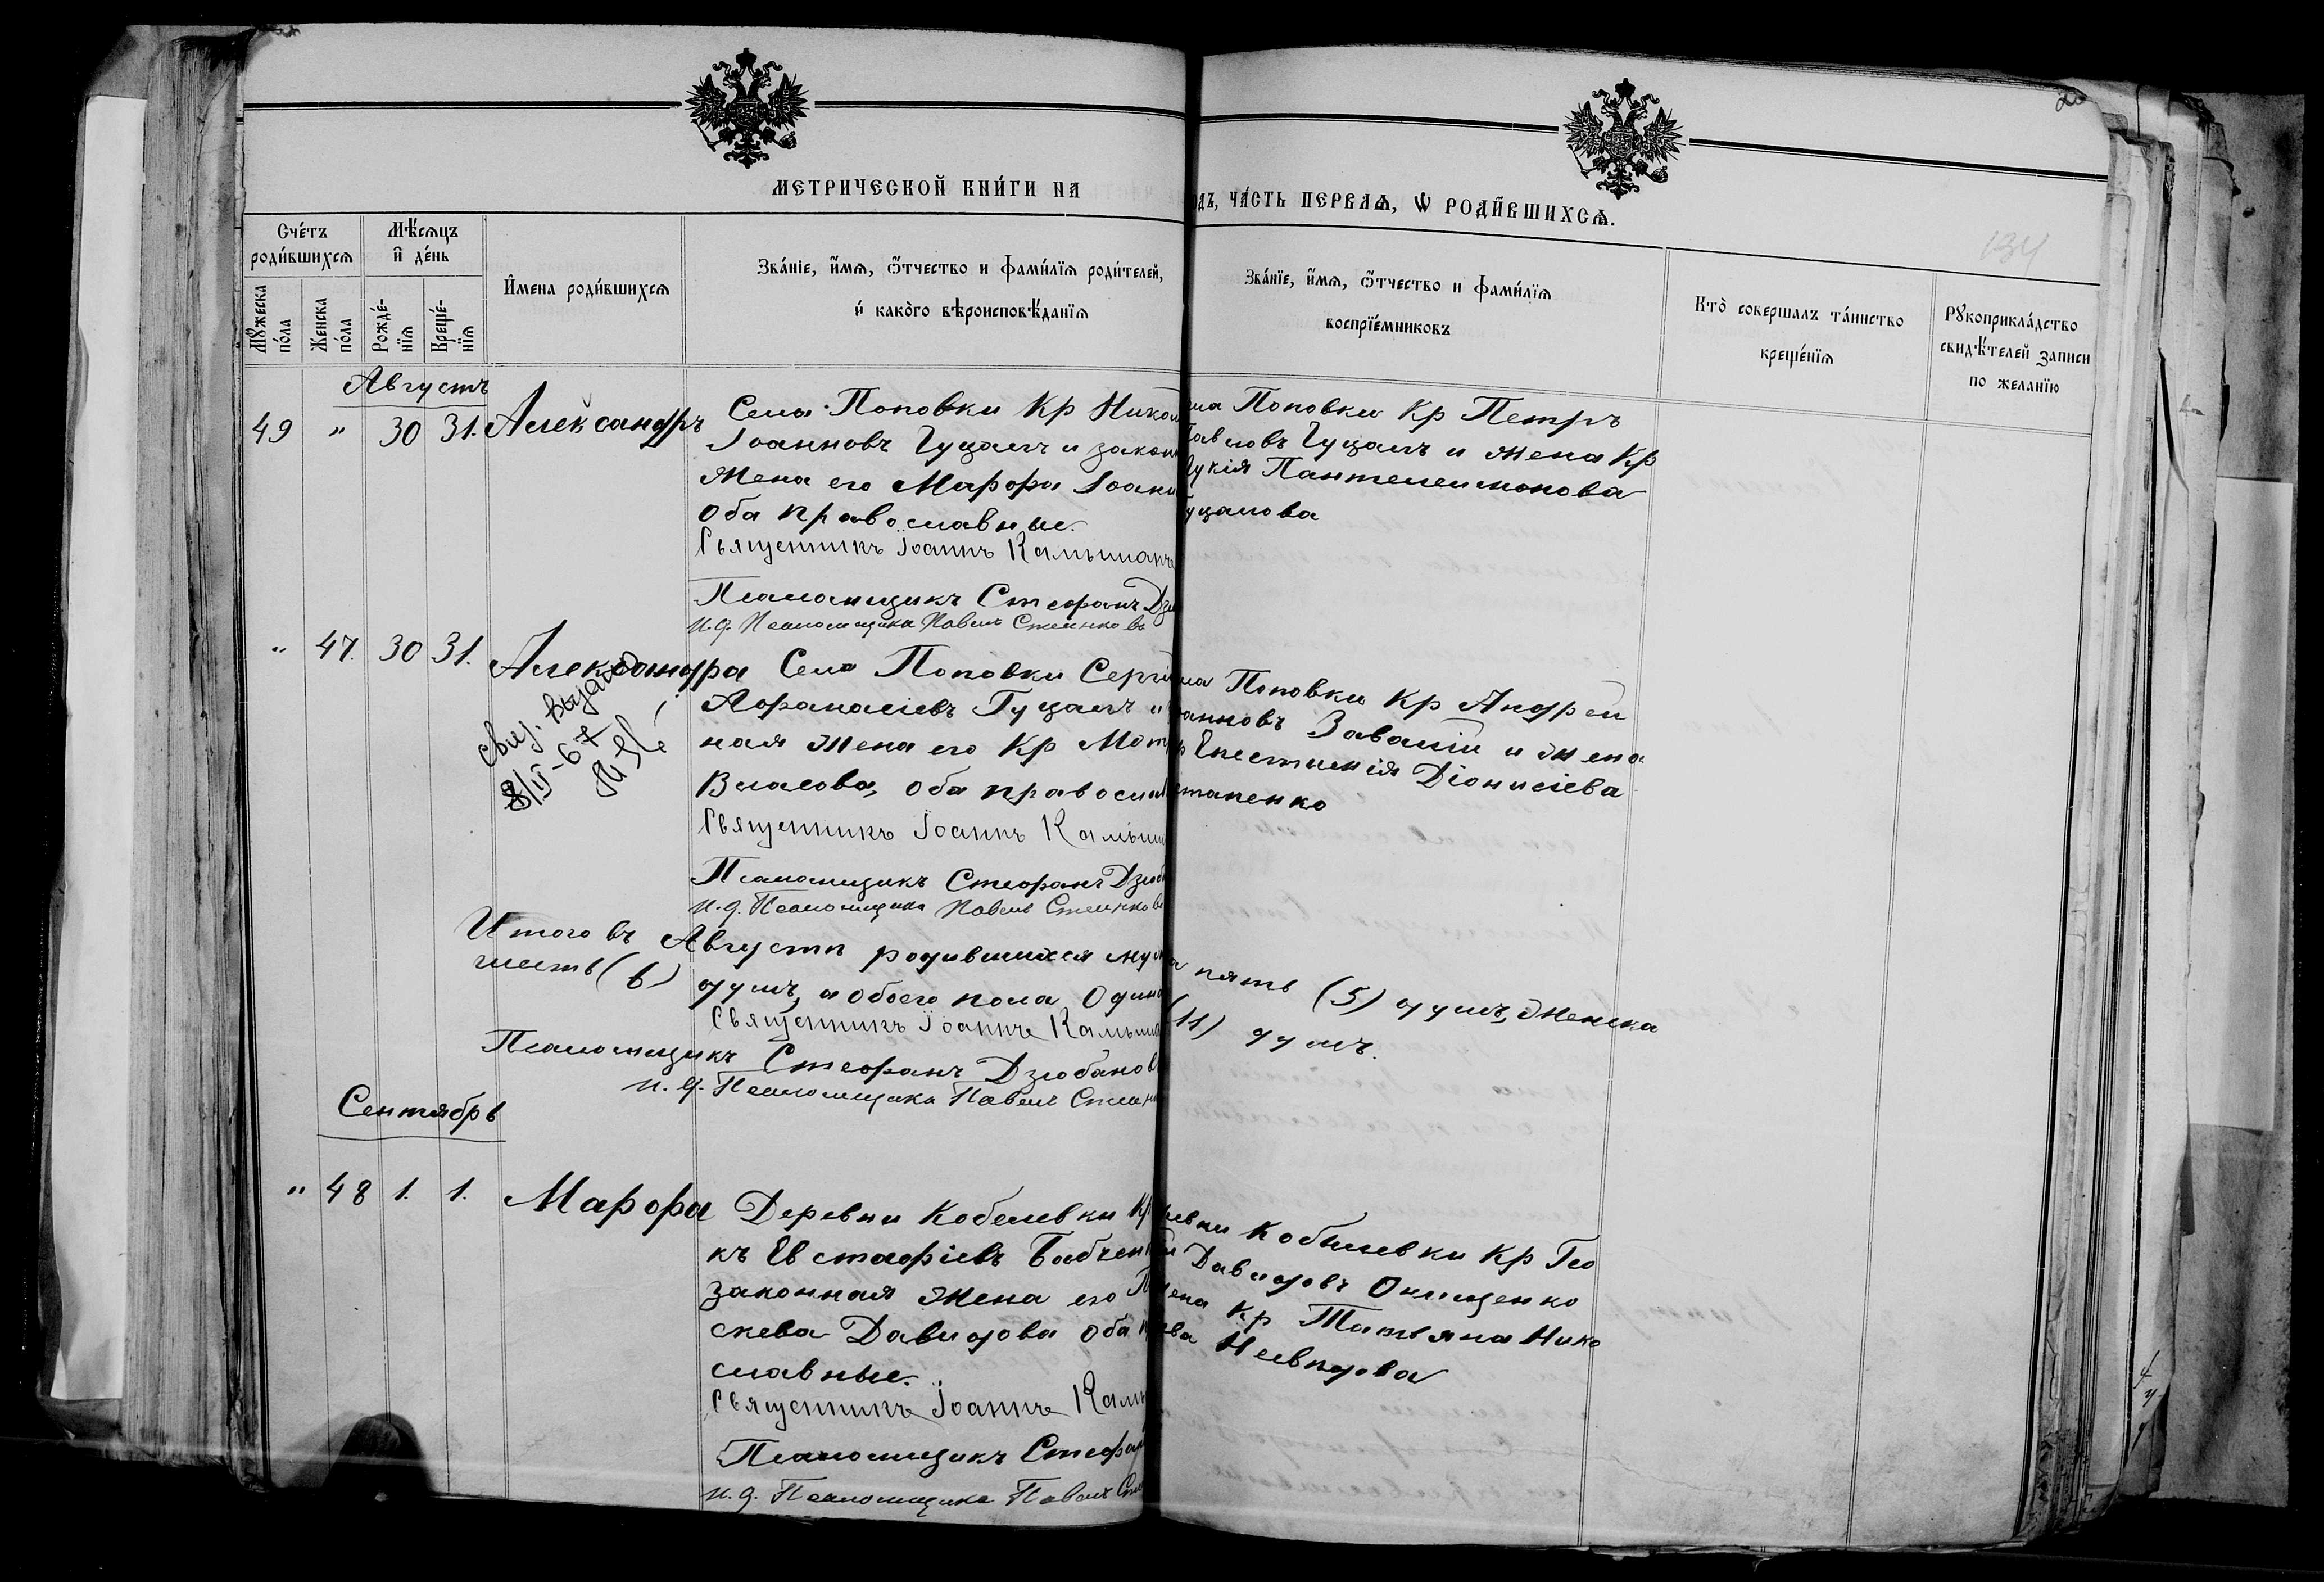 МЕТРИЧЕСКОЙ КНИ́ГИ НА
ОДЪ, ЧА́СТЬ ПЕРВАѦ, Ѡ РОДИ́ВШИХСѦ.
134
Сче́тъ роди́вшихсѧ
Мѣ́сѧцъ и҆ де́нь
И҆́мена роди́вшихсѧ
Зва́нїе, и҆́мѧ, ѻ҆́тчество и фами́лїѧ роди́телей,
и҆ како́го вѣроисповѣ́данїѧ
Зва́нїе, и҆́мѧ, ѻ҆́тчество и фами́лїѧ
воспрїе́мниковъ
Кто̀ соверша́лъ та́инство
креще́нїѧ
Рꙋкоприкла́дство
свидѣ́телей записи
по желанїю
Мꙋ́жеска по́ла
Женска по́ла
Рожде́-нїѧ
Креще́-нїѧ
Августъ
49 " 30 31. Александръ
Села Поповки Кр Никол
Іоанновъ Гуцалъ и закон
жена его Марфа Іоан
оба православные.
Священникъ Іоаннъ Камышан
Псаломщикъ Стефанъ Дзю
И.д. Псаломщика Павелъ
ла Поповки Кр Петръ
Павловъ Гуцалъ и жена Кр
Лукія Пантелеимонова
Гуцалова
" 47. 30 31. Александра
свид. выдано
8/II-67
Села Поповки Сергі
Афанасіевъ Гуцалъ и
ная жена его Кр Мот
Власова, оба правосла
Священникъ Іоаннъ Камыш
Псаломщикъ Стефанъ Дзюб
И.д. Псаломщика Павелъ
ла Поповки Кр Андрей
оанновъ Завалій и жена
Кр Епистимія Діонисіева
Итого въ Августѣ родившихся муж
а пять (5) душъ, женска
шесть (6) душъ, а обоего пола Один
(11) душъ.
Священникъ Іоаннъ Камыша
Псаломщикъ Стефанъ Дзюбанов
И.д. Псаломщика Павелъ
Сентябрь
" 48 1. 1. Марфа
Деревни Кобелевки Кр
къ Евстафіевъ Бабчен
законная жена его П
скева Давидова оба п
славные.
Священникъ Іоаннъ Кам
Псаломщикъ Стефан
И.д. Псаломщика Павелъ
ревни Кобылевки Кр Гео
Давидовъ Онищенко
жена Кр Татьяна Нико
ва